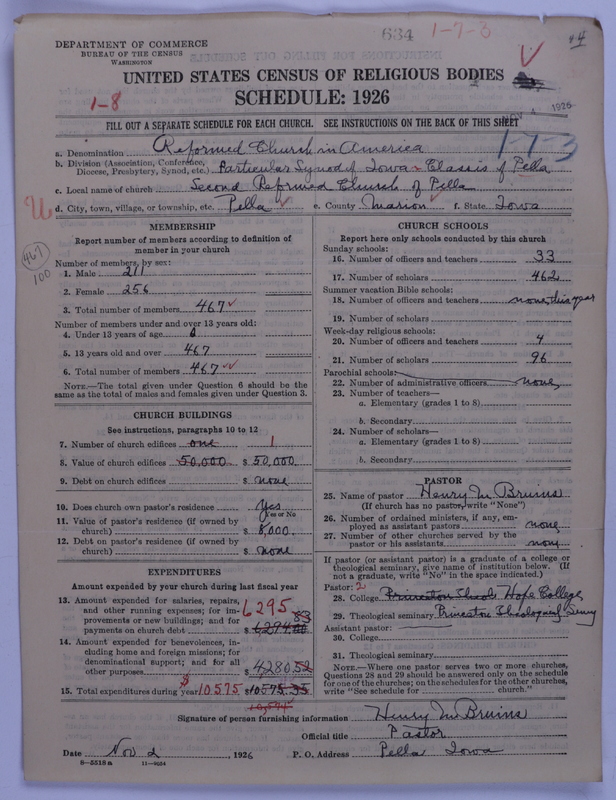 634 1-7-3
4
DEPARTMENT OF COMMERCE
BUREAU OF THE CENSUS
WASHINGTON
UNITED STATES CENSUS OF RELIGIOUS BODIES
SCHEDULE: 1926
1-8
1926
FILL OUT A SEPARATE SCHEDULE FOR EACH CHURCH. SEE INSTRUCTIONS ON THE BACK OF THIS SHEET
1-7-3
a. Denomination Reformed Church in America
b. Division (Association, Conference, Diocese, Presbytery, Synod, etc.) Particular Synod of Iowa - Classis of Pella
c. Local name of church Second Reformed Church of Pella
d. City, town, village, or township, etc. Pella e. County Marion f. State Iowa
467
100
MEMBERSHIP
Report number of members according to definition of
member in your church
Number of members, by sex:
1. Male 211
2. Female 256
3. Total number of members 467
Number of members under and over 13 years old:
4. Under 13 years of age 0
5. 13 years old and over 467
6. Total number of members 467
NOTE.—The total given under Question 6 should be
the same as the total of males and females given under Question 3.
CHURCH BUILDINGS
See instructions, paragraphs 10 to 12
7. Number of church edifices one 1
8. Value of church edifices 50,000 $ 50,000
9. Debt on church edifices $ none
10. Does church own pastor's residence Yes
Yes or No
11. Value of pastor's residence (if owned by
church) $ 8,000
12. Debt on pastor's residence (if owned by
church) $ none
EXPENDITURES
Amount expended by your church during last fiscal year
13. Amount expended for salaries, repairs,
and other running expenses; for im-
provements or new buildings; and for
payments on church debt 6295
14. Amount expended for benevolences, in-
cluding home and foreign missions; for
denominational support; and for all
other purposes $ 4280.52
15. Total expenditures during year $ 10575 $10,575.35
CHURCH SCHOOLS
Report here only schools conducted by this church
Sunday schools:
16. Number of officers and teachers 33
17. Number of scholars 462
Summer vacation Bible schools:
18. Number of officers and teachers none this year
19. Number of scholars
Week-day religious schools:
20. Number of officers and teachers 4
21. Number of scholars 96
Parochial schools:
22. Number of administrative officers none
23. Number of teachers—
a. Elementary (grades 1 to 8)
b. Secondary
24. Number of scholars—
a. Elementary (grades 1 to 8)
b. Secondary
PASTOR
25. Name of pastor Henry M Bruins
(If church has no pastor, write "None")
26. Number of ordained ministers, if any, em-
ployed as assistant pastors none
27. Number of other churches served by the
pastor or his assistants none
If pastor (or assistant pastor) is a graduate of a college or
theological seminary, give name of institution below. (If
not a graduate, write "No" in the space indicated.)
Pastor: 2
28. College Hope College
29. Theological seminary Princeton Theological Semy
Assistant pastor:
30. College
31. Theological seminary
NOTE.—Where one pastor serves two or more churches,
Questions 28 and 29 should be answered only on the schedule
for one of the churches; on the schedules for the other churches,
write "See schedule for church."
Signature of person furnishing information Henry M Bruins
Official title Pastor
Date Nov 2, 1926 P. O. Address Pella Iowa
8—5518a 11—9034